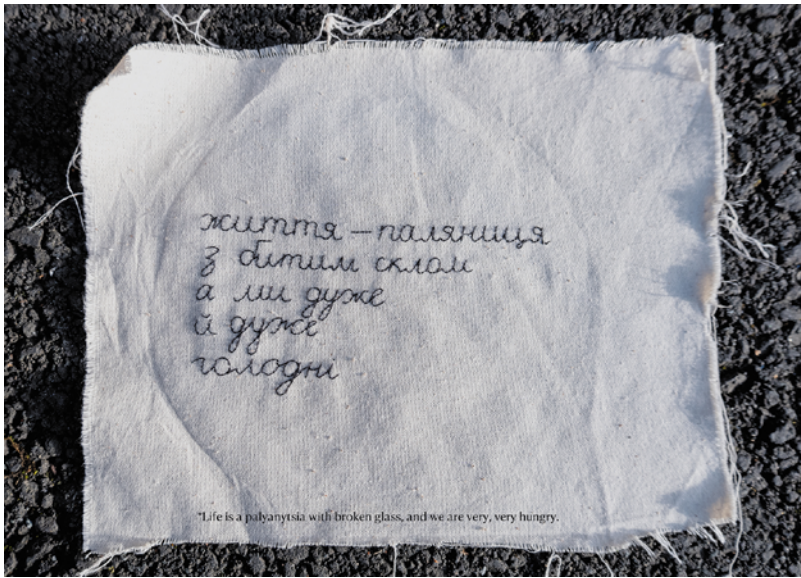 життя – паляниця
з битим склом
а ми дуже
й дуже
голодні
"Life is a palyanytsia with broken glass, and we are very, very hungry.